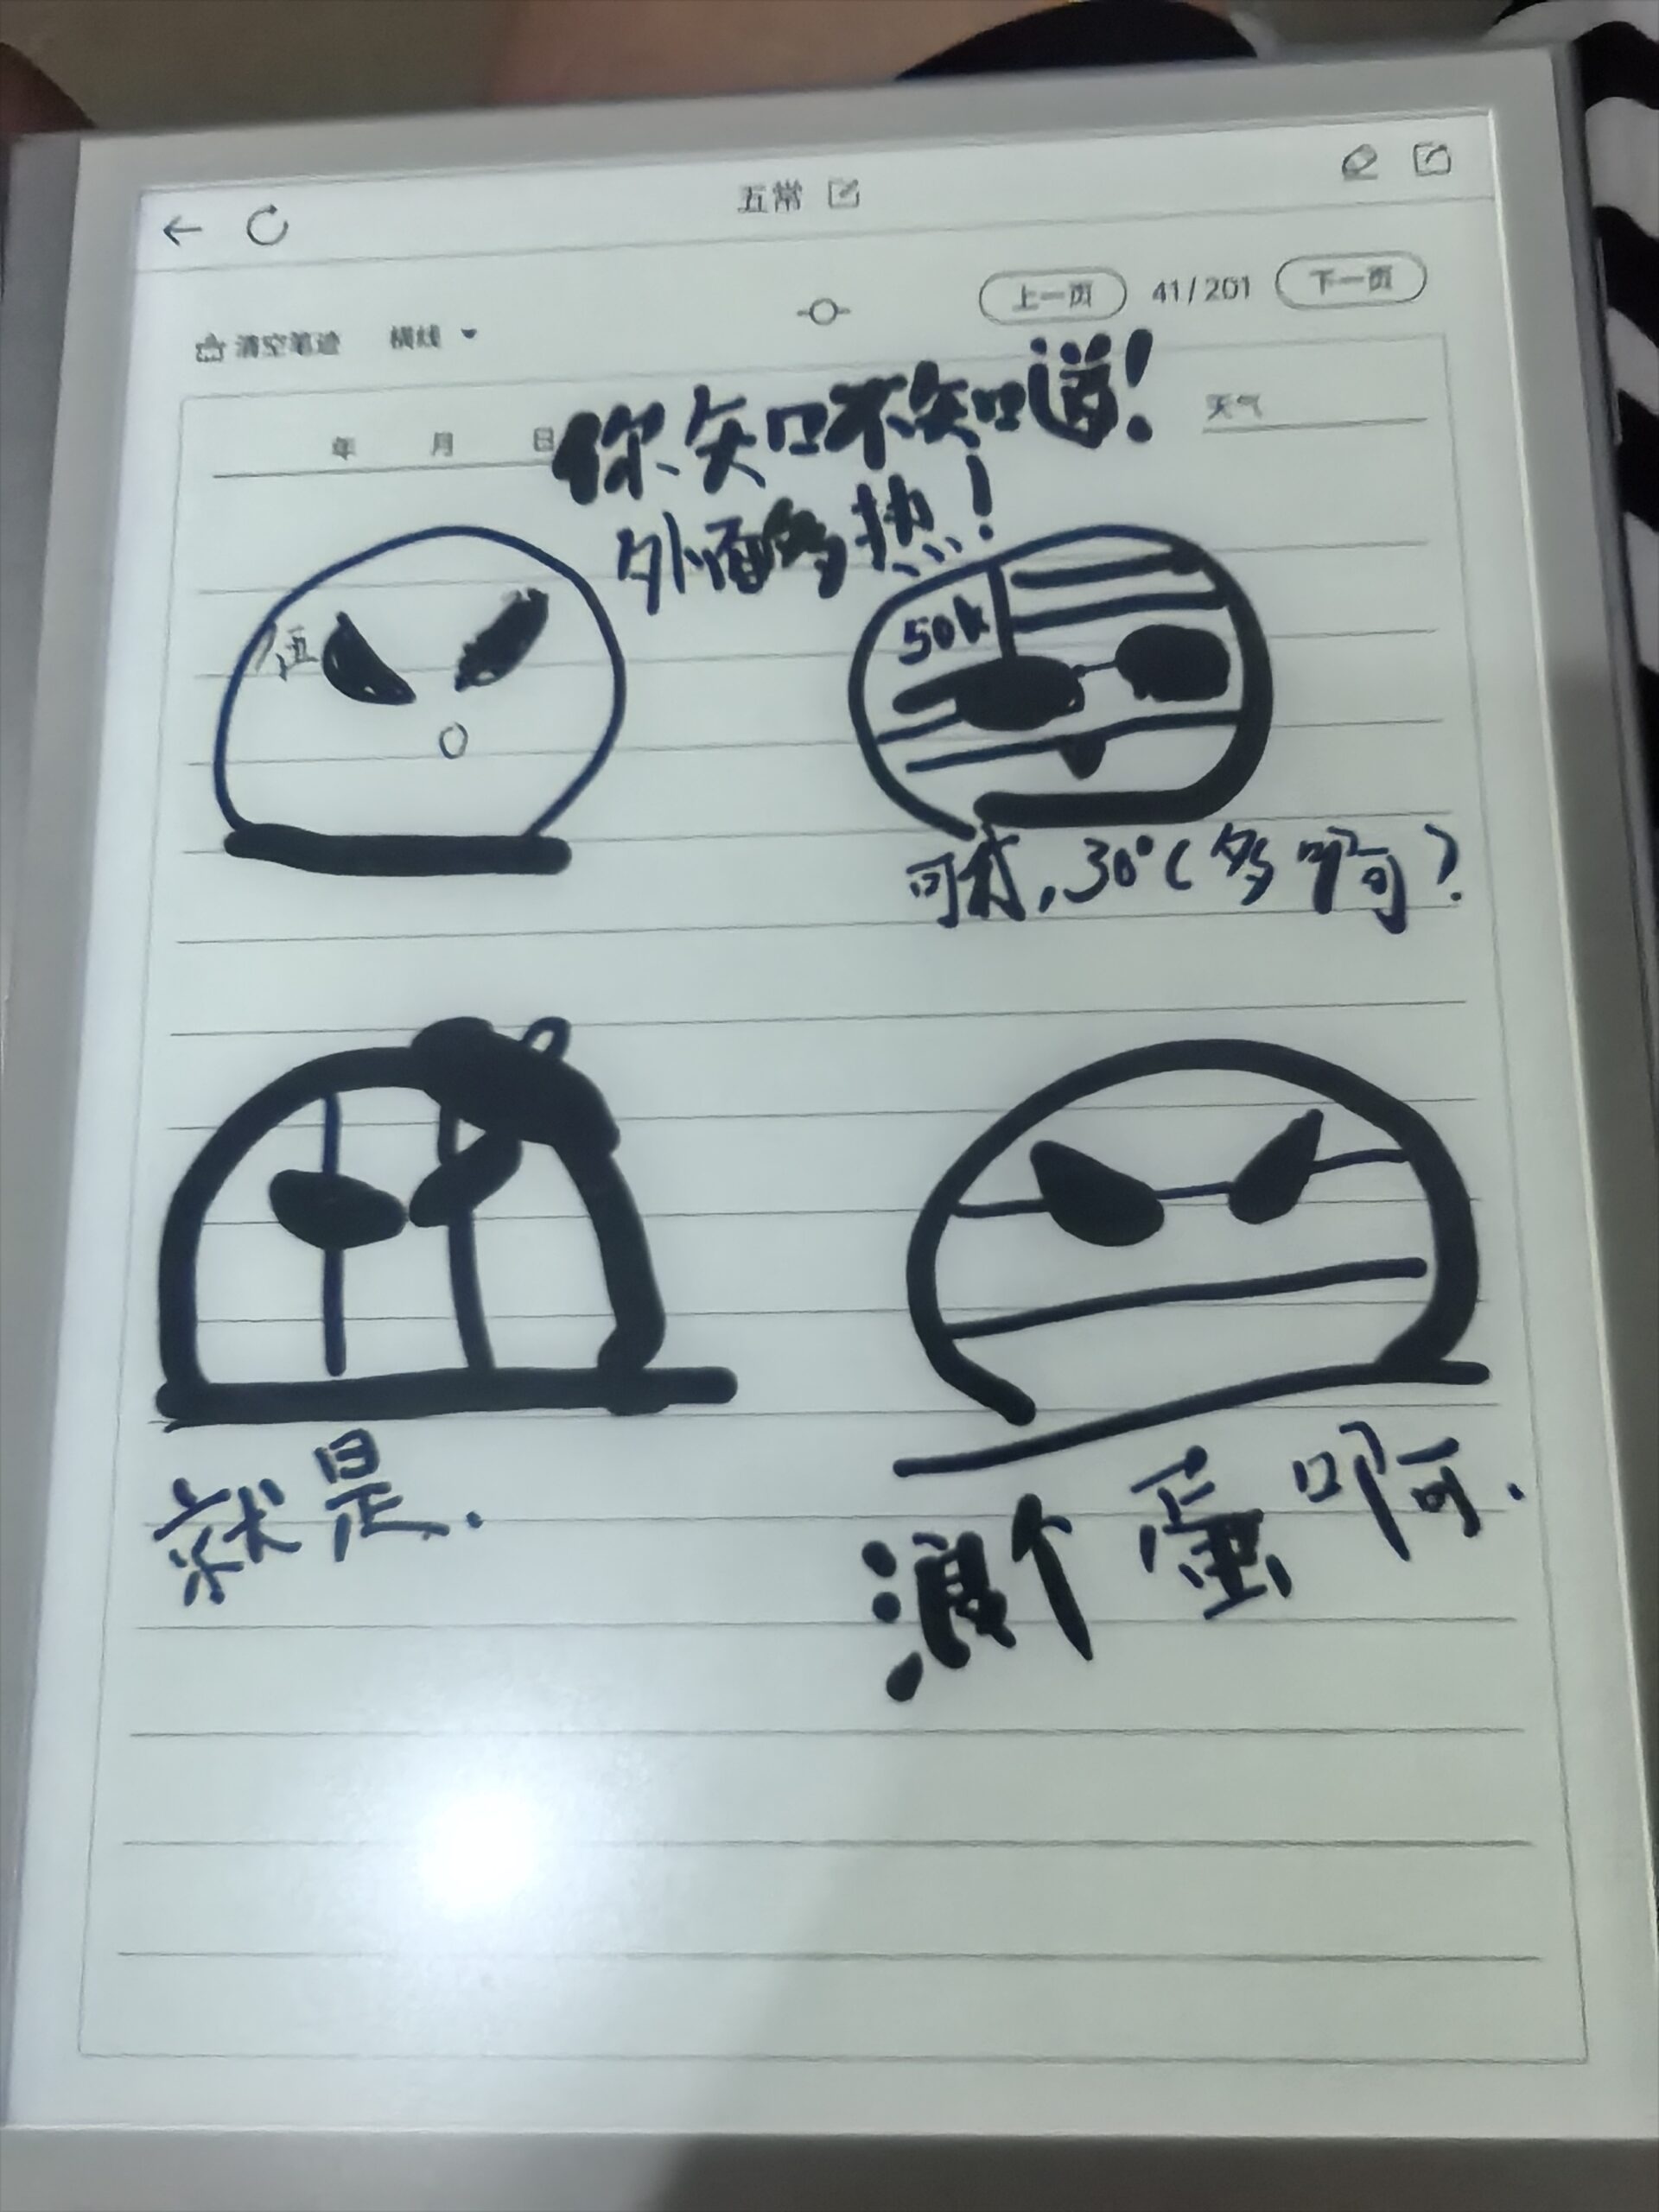 五常
上一页 41/201 下一页
清空笔迹 横线
年 月 日 天气
你知不知道!
外面多热!
伍
50k
可我,30℃多啊?
就是.
测个蛋啊.